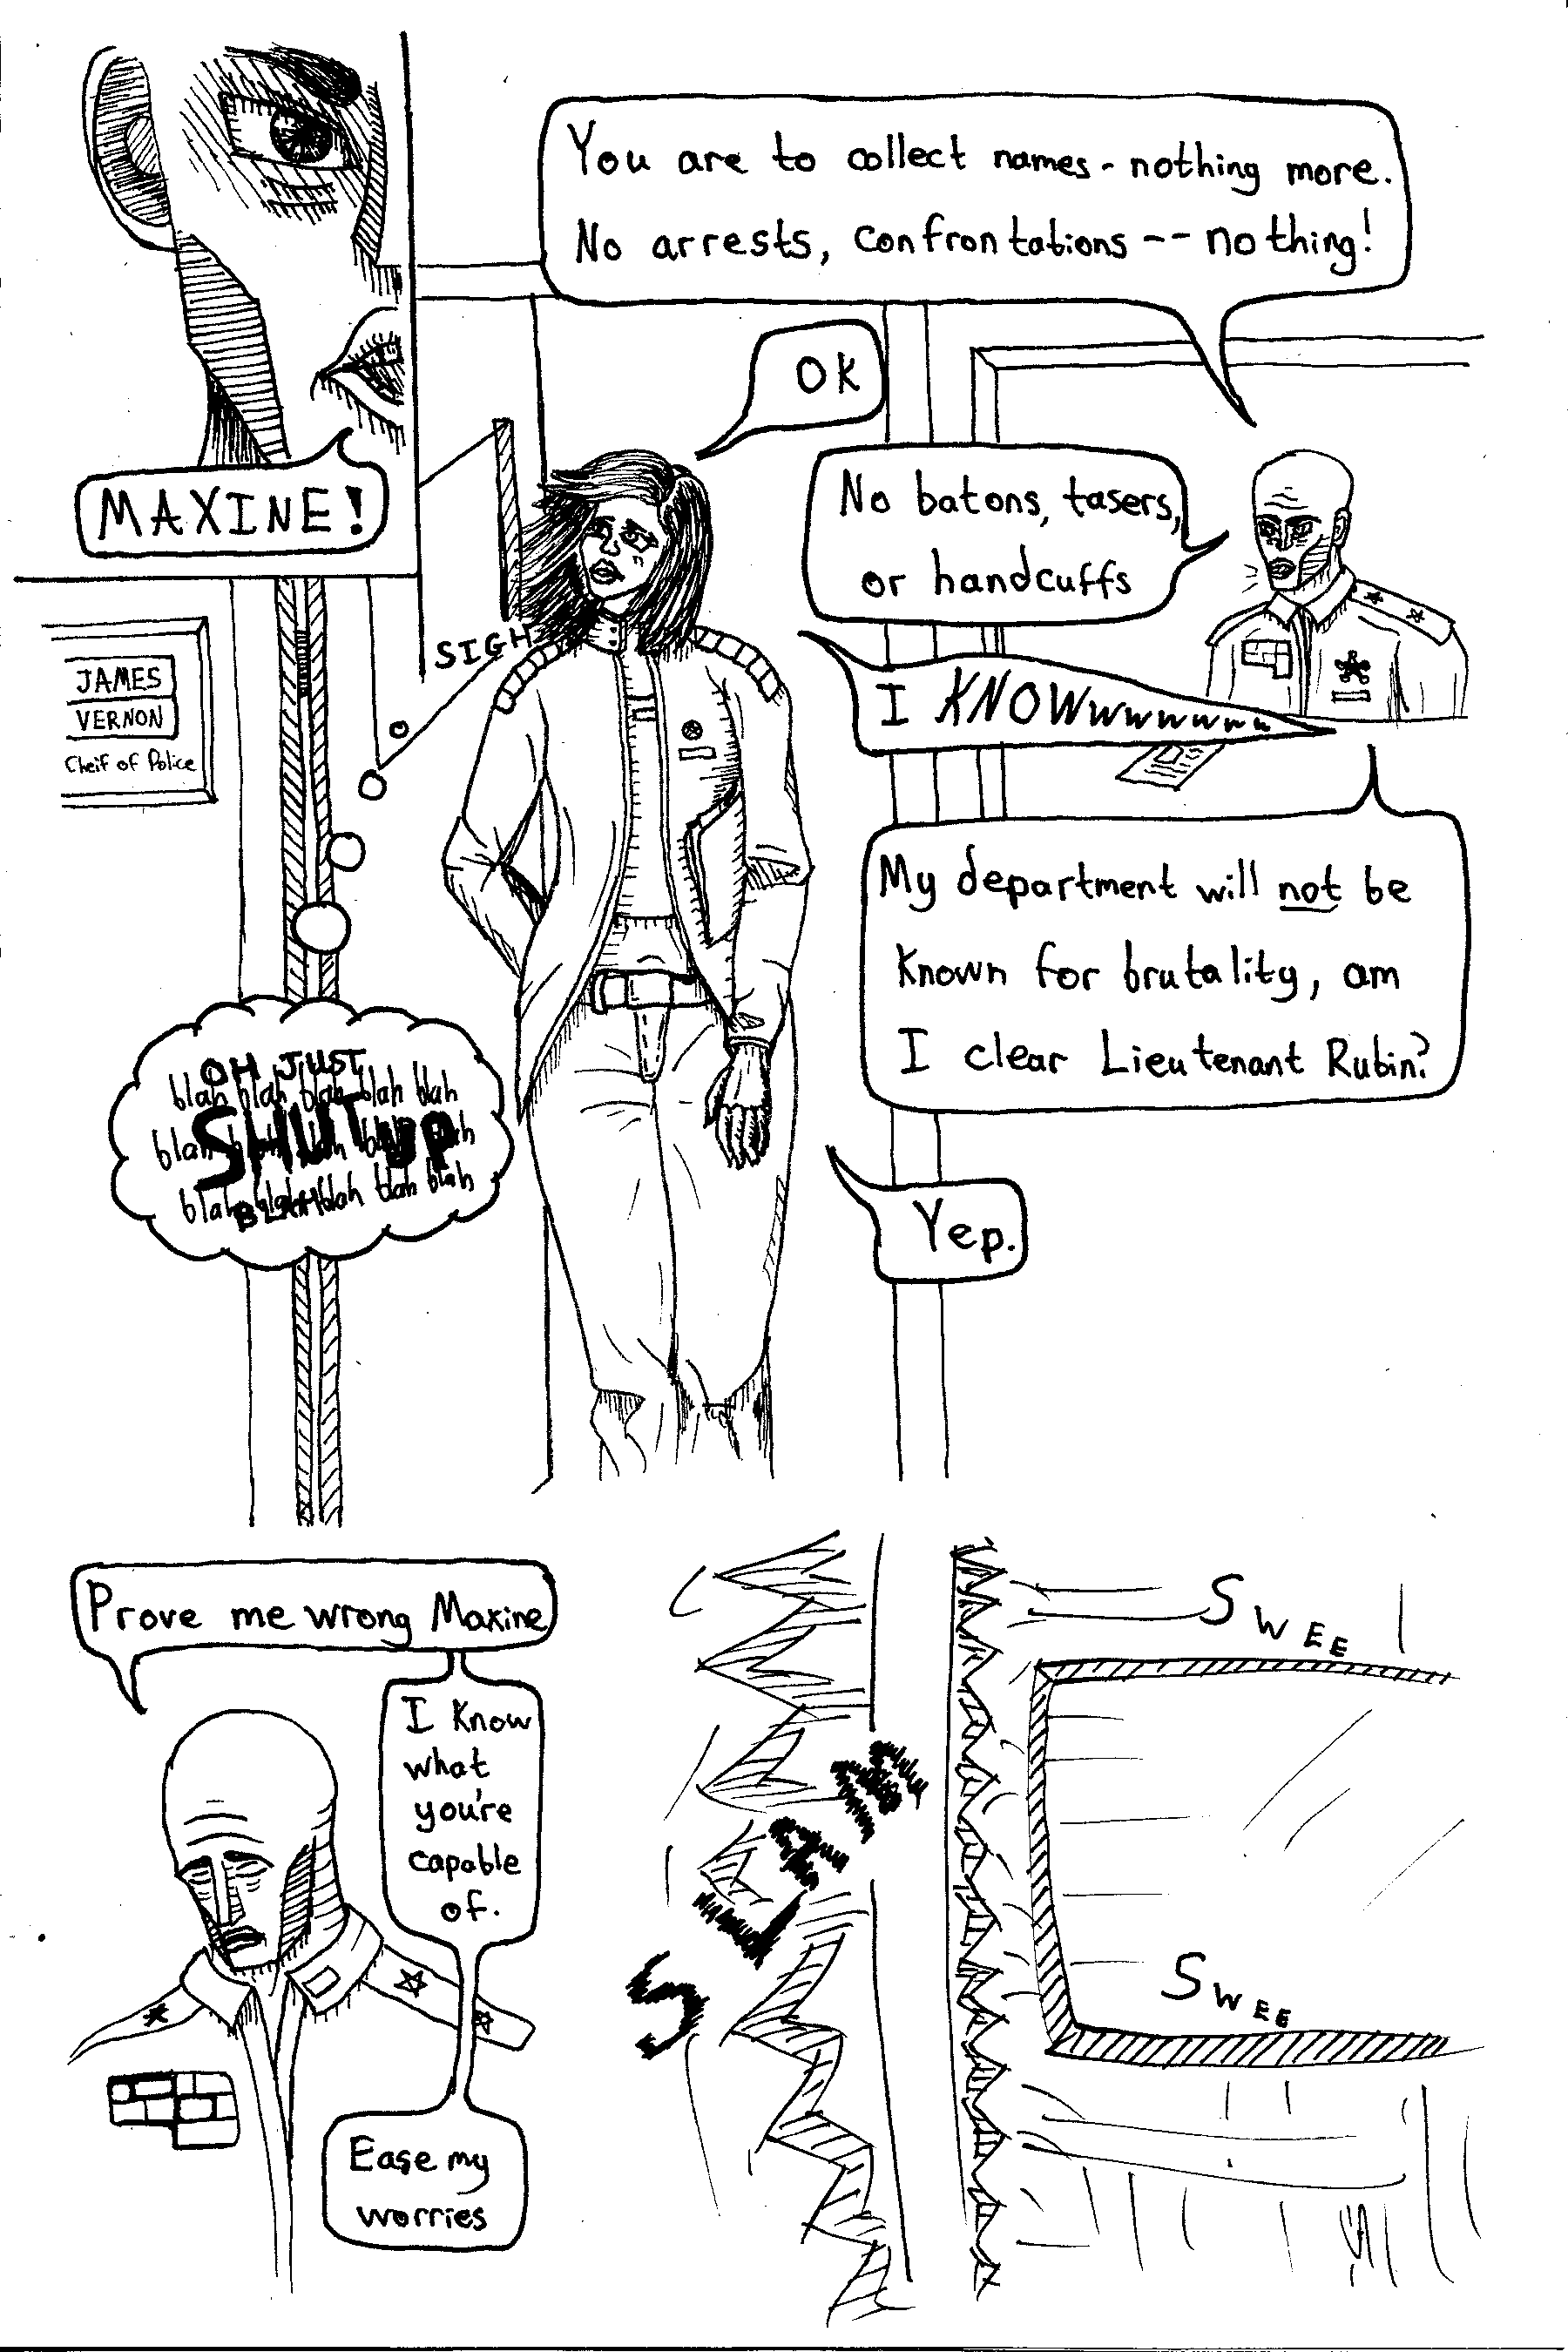 MAXINE!
You are to collect names - nothing more.
No arrests, confrontations -- nothing!
OK
No batons, tasers,
or handcuffs
SIGH
I KNOWwwwwwww
JAMES
VERNON
Cheif of Police
My department will not be
known for brutality, am
I clear Lieutenant Rubin?
OH JUST
blah blah blah blah blah
SHUT up
blah blah blah blah blah
blah blah blah blah blah
BLAH
Yep.
Prove me wrong Maxine
I know
what
you're
capable
of.
Ease my
worries
SLAM
SWEE
SWEE